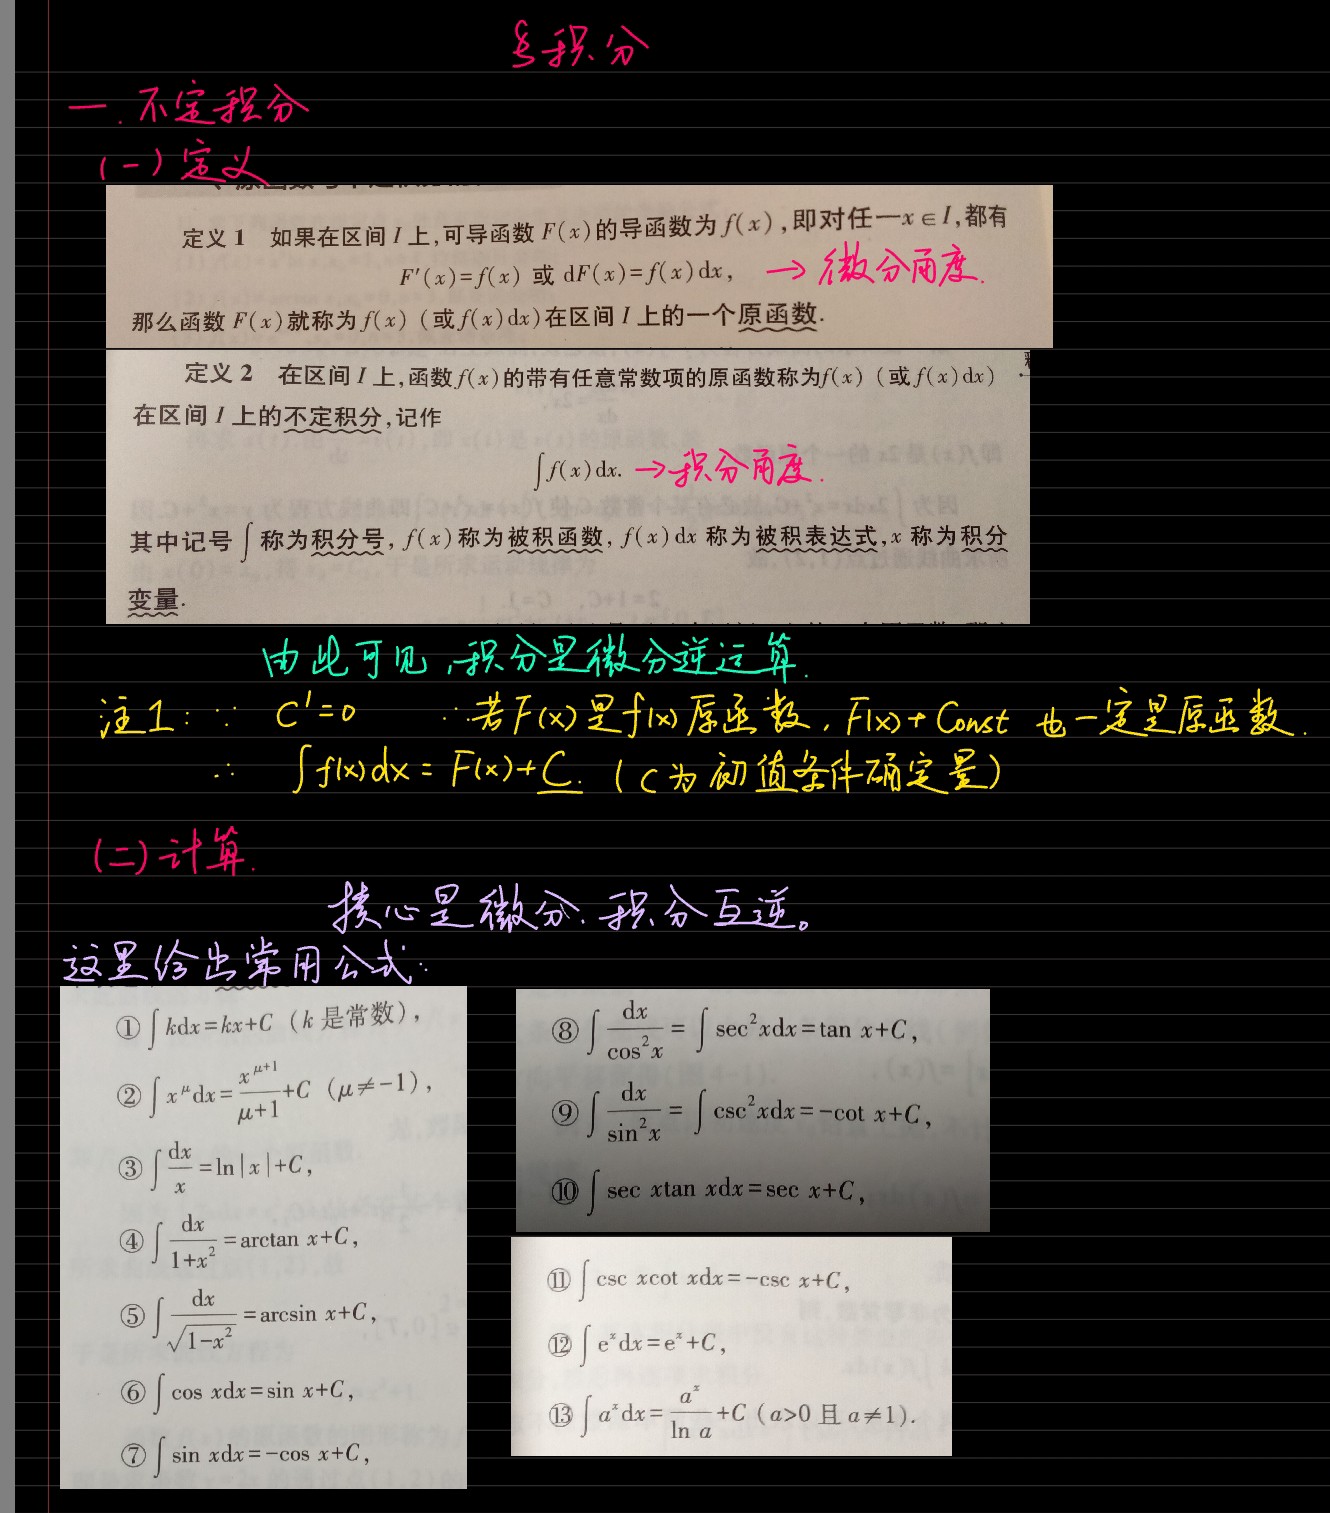 §积分
一.不定积分
(一)定义
定义 1 如果在区间 I 上,可导函数 F(x)的导函数为 f(x),即对任一x∈I,都有
F′(x)=f(x) 或 dF(x)=f(x)dx, → 微分角度.
那么函数 F(x)就称为 f(x)(或 f(x)dx)在区间 I 上的一个原函数.
定义 2 在区间 I 上,函数 f(x)的带有任意常数项的原函数称为f(x)(或 f(x)dx)
在区间 I 上的不定积分,记作
∫f(x)dx. →积分角度.
其中记号∫称为积分号, f(x)称为被积函数, f(x)dx 称为被积表达式,x 称为积分
变量.
由此可见,积分是微分逆运算.
注1: ∵ C'=0 ∴若F(x)是f(x)原函数, F(x)+Const 也一定是原函数.
∴ ∫f(x)dx = F(x)+C. (C为初值条件确定量)
(二)计算.
核心是微分、积分互逆。
这里给出常用公式:
① ∫kdx=kx+C (k 是常数),
② ∫x^μ dx=x^(μ+1)/(μ+1)+C (μ≠-1),
③ ∫dx/x=ln|x|+C,
④ ∫dx/(1+x²)=arctan x+C,
⑤ ∫dx/√(1-x²)=arcsin x+C,
⑥ ∫cos xdx=sin x+C,
⑦ ∫sin xdx=-cos x+C,
⑧ ∫dx/cos²x=∫sec²xdx=tan x+C,
⑨ ∫dx/sin²x=∫csc²xdx=-cot x+C,
⑩ ∫sec xtan xdx=sec x+C,
⑪ ∫csc xcot xdx=-csc x+C,
⑫ ∫e^x dx=e^x+C,
⑬ ∫a^x dx=a^x/ln a+C (a>0 且 a≠1).